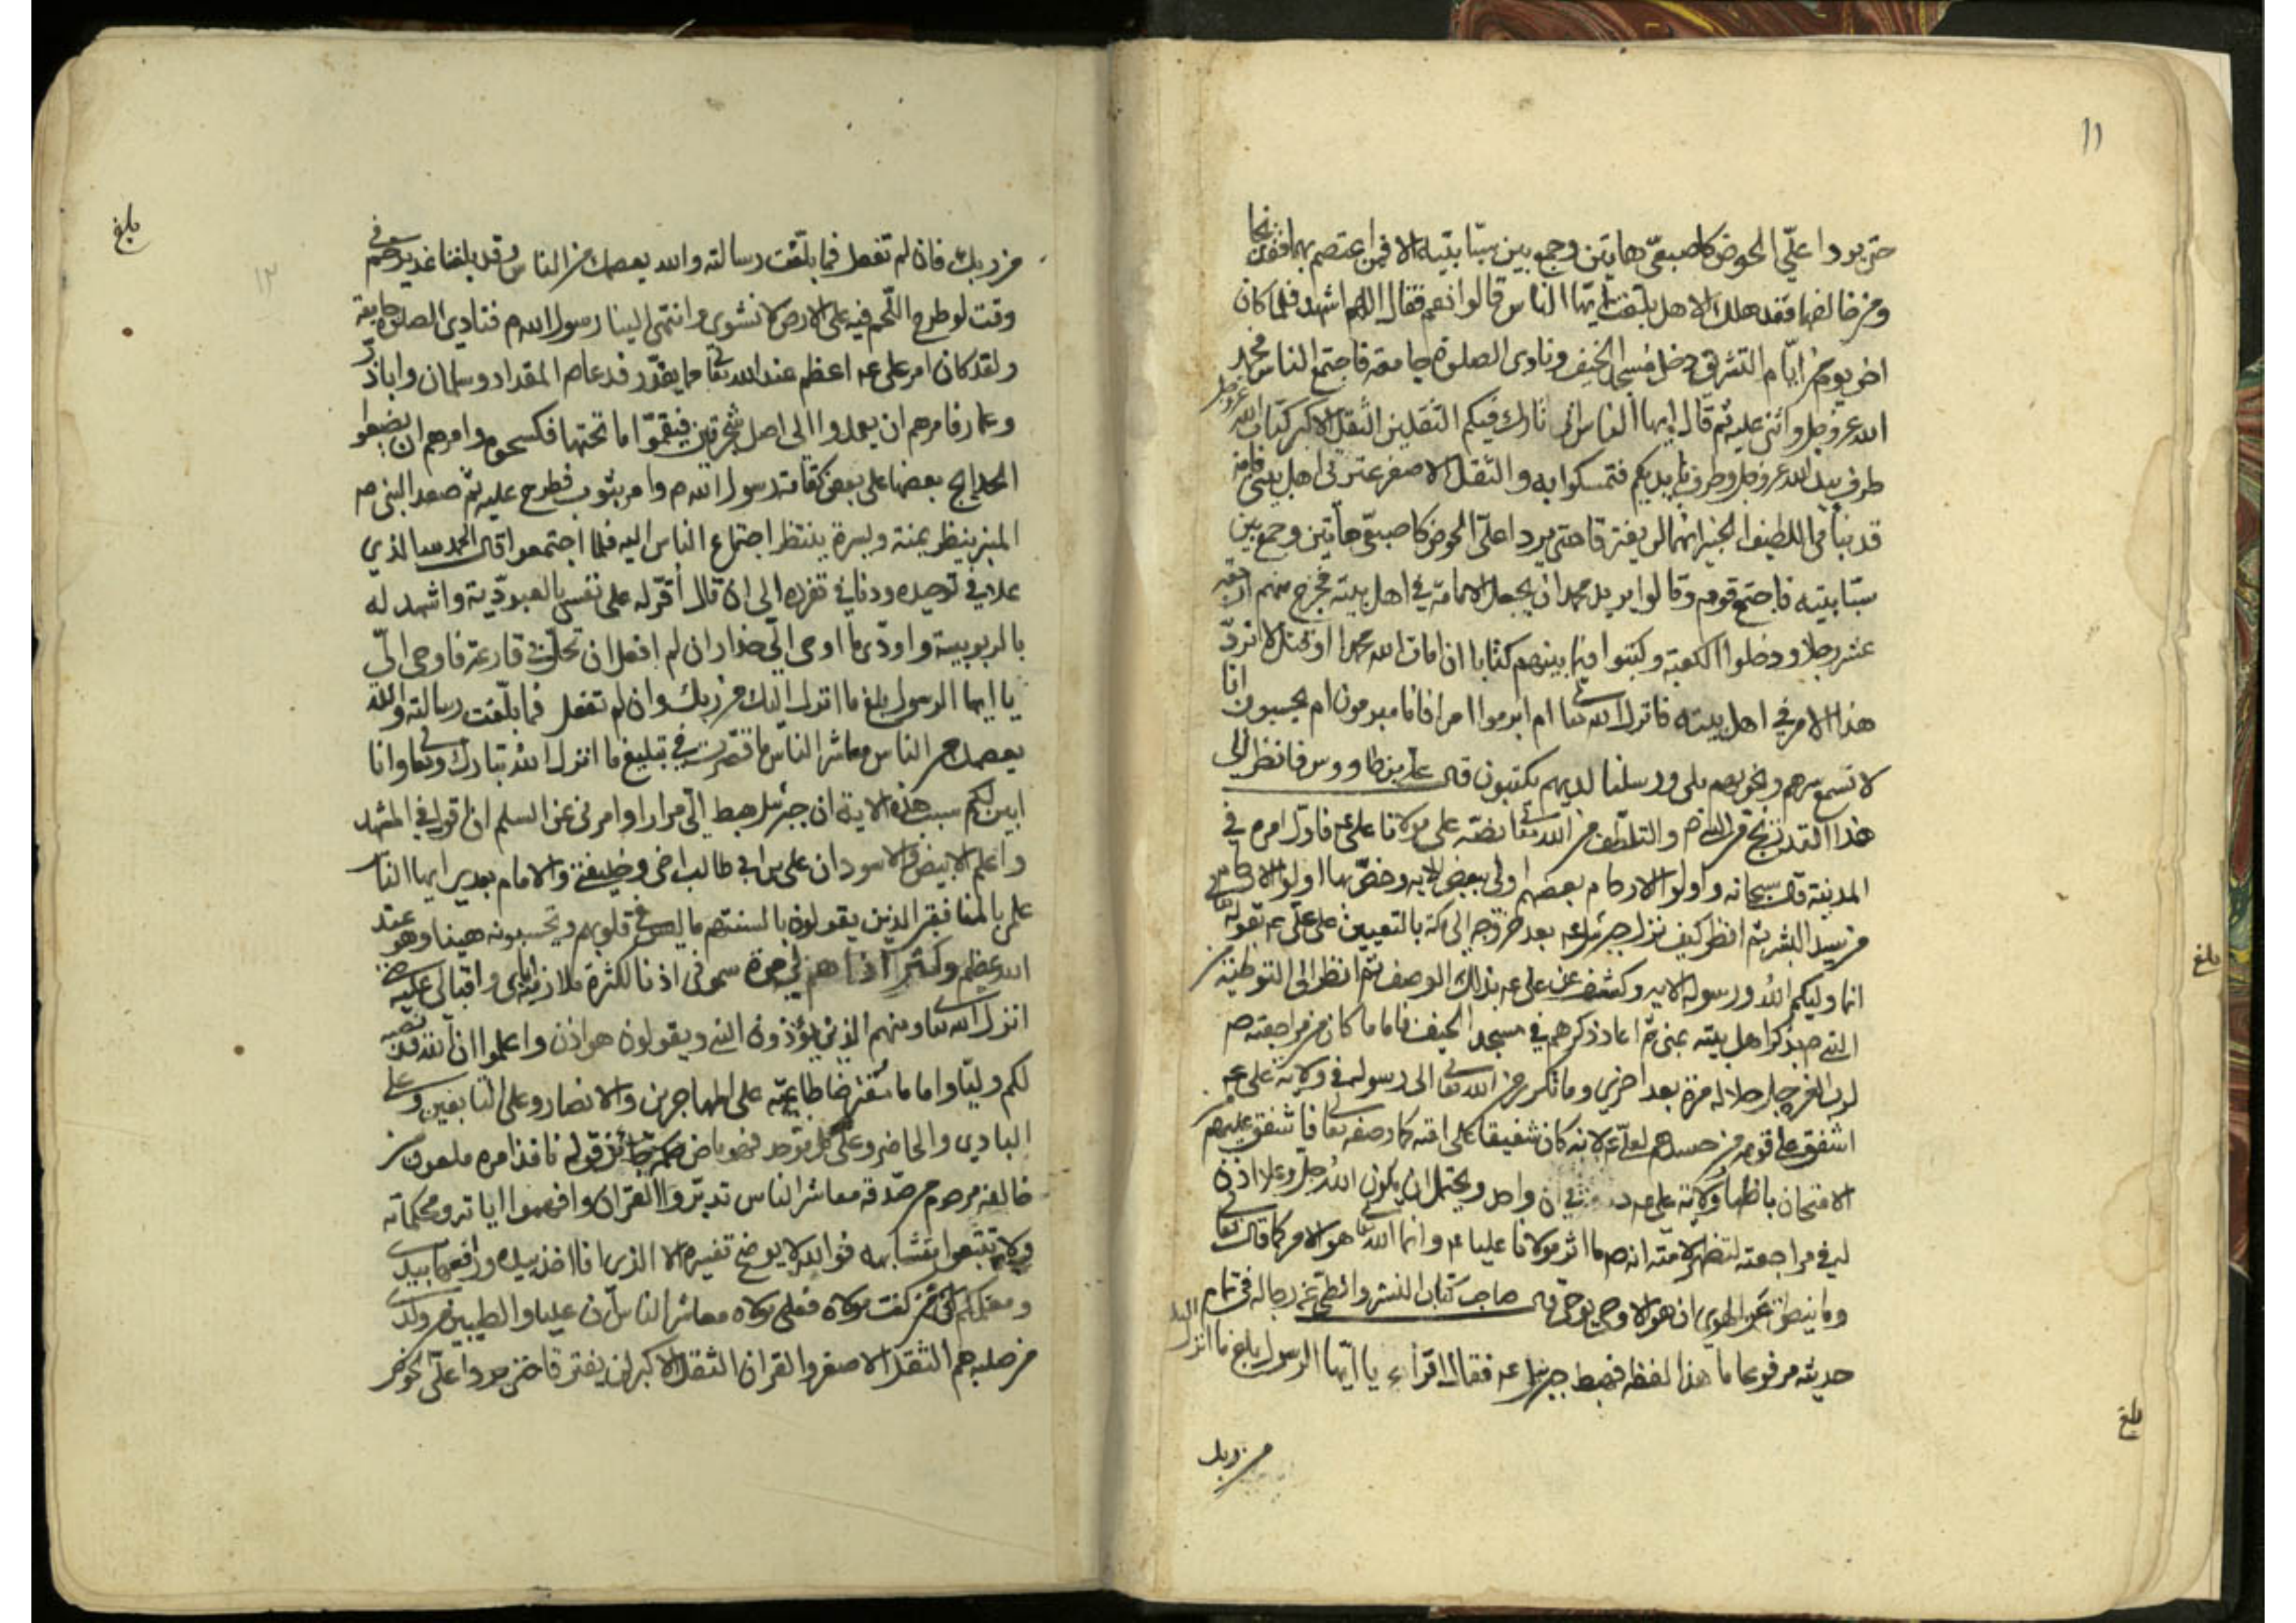 ١١
حتى يردا عليّ الحوض كاصبعيّ هاتين وجمع بين سبّابتيه الا فمن اعتصم بهما فقد نجا
ومن خالفهما فقد هلك الا هل بلّغت ايّها الناس قالوا نعم فقال اللهم اشهد فلما كان
اخر يوم من ايّام التشريق دخل مسجد الخيف ونادى الصلوة جامعة فاجتمع الناس فحمد
الله عز وجل واثنى عليه ثم قال ايها الناس انى تارك فيكم الثقلين الثقل الاكبر كتاب الله عز وجل
طرف بيد الله عز وجل وطرف بايديكم فتمسكوا به والثقل الاصغر عترتى اهل بيتى فانه
قد نبأنى اللطيف الخبير انهما لن يفترقا حتى يردا علىّ الحوض كاصبعيّ هاتين وجمع بين
سبّابتيه فاجتمع قوم وقالوا يريد محمد ان يجعل الامامة في اهل بيته فخرج منهم اربعة
عشر رجلا ودخلوا الكعبة وكتبوا فيما بينهم كتابا ان امات الله محمدا او قتل لا نردّ
هذا الامر في اهل بيته فانزل الله تعالى ام ابرموا امرا فانا مبرمون ام يحسبون انا
لا نسمع سرهم ونجويهم بلى ورسلنا لديهم يكتبون قال على بن طاووس فانظر الى
هذا التدريج من النبي ص والتلطف من الله تعالى بنصّه على مولانا على ع فاول امره في
المدينة قال سبحانه واولو الارحام بعضهم اولى ببعض الايه وخصّ بها اولو الارحام
من سيد البشر ثم انظر كيف نزل جبرئيل ع بعد خروجه الى مكة بالتعيين على على ع بقوله تعالى
انما وليكم الله ورسوله الايه وكشف عن على ع بذلك الوصف ثم انظر الى التوطئة من
النبي ص بذكر اهل بيته بمنى ثم اعاد ذكرهم في مسجد الخيف فاما ما كان من مراجعته ص
لرب العزة جل جلاله مرة بعد اخرى وما تكرر من الله تعالى الى رسوله في ولاية على ع
اشفق على قومه من حسدهم لعلى ع لانه كان شفيقا على امته كما وصفه تعالى فاشفق عليهم من
الامتحان باظهار ولاية على ع في ان واحد ويحتمل ان يكون الله جل وعلا اذن
له في مراجعته لتظهر لامته انه ص ما اثر مولانا عليا ع وانما الله تعالى هو الامر كما قال تعالى
وما ينطق عن الهوى ان هو الا وحى يوحى قال صاحب كتاب النشر والطى عن رجاله في تمام
حديثه مرفوعا ما هذا لفظه فهبط جبرئيل ع فقال اقرأ يا ايّها الرسول بلغ ما انزل اليك
من ربك
بلغ
بلغ
بلغ
١٢
من ربك فان لم تفعل فما بلّغت رسالته والله يعصمك من الناس وقد بلغنا غدير خم في
وقت لو طرح اللحم فيه على الارض لانشوى وانتهى الينا رسول الله ص فنادى الصلوة جامعة
ولقد كان امر على ع اعظم عند الله تعالى مما يقدّر فدعا ص المقداد وسلمان واباذر
وعمار فامرهم ان يعمدوا الى اصل شجرتين فيقمّوا ما تحتهما فكسحوه وامرهم ان يضعوا
الحجارة بعضها على بعض كقامة رسول الله ص وامر بثوب فطرح عليه ثم صعد النبى ص
المنبر ينظر يمنة ويسرة ينتظر اجتماع الناس اليه فلما اجتمعوا قال الحمد لله الذي
علا في توحيده ودنا في تفرده الى ان قال أقرّ له على نفسى بالعبوديّة واشهد له
بالربوبية واودّى ما اوحى الىّ حذار ان لم افعل ان تحلّ بى قارعة فاوحى الىّ
يا ايها الرسول بلغ ما انزل اليك من ربك وان لم تفعل فما بلّغت رسالته والله
يعصمك من الناس معاشر الناس ما قصّرت في تبليغ ما انزل الله تبارك وتعالى وانا
ابين لكم سبب هذه الاية ان جبرئيل هبط الىّ مرارا وامرنى عن السلم ان اقول في المشهد
واعلم الابيض والاسود ان على بن ابي طالب اخى وخليفتى والامام بعدى ايها الناس
علمى بالمنافقين الذين يقولون بالسنتهم ما ليس في قلوبهم ويحسبونه هينا وهو عند
الله عظيم وكثرة اذاهم لي مرة سمونى اذنا لكثرة ملازمته اياى واقبالى عليه حتى
انزل الله تعالى ومنهم الذين يؤذون النبى ويقولون هو اذن واعلموا ان الله قد نصبه
لكم وليّا واماما مفترضا طاعته على المهاجرين والانصار وعلى التابعين وعلى
البادي والحاضر وعلى كل موحد فهو ماض حكمه جائز قوله نافذ امره ملعون من
خالفه مرحوم من صدّقه معاشر الناس تدبّروا القران وافهموا اياته ومحكماته
ولا تتبعوا متشابهه فوالله لا يوضح تفسيره الا الذى انا اخذ بيده ورافعها بيدى
ومعلمكم ان من كنت مولاه فعلى مولاه معاشر الناس ان عليا والطيبين من ولدى
من صلبه هم الثقل الاصغر والقران الثقل الاكبر لن يفترقا حتى يردا علىّ الحوض